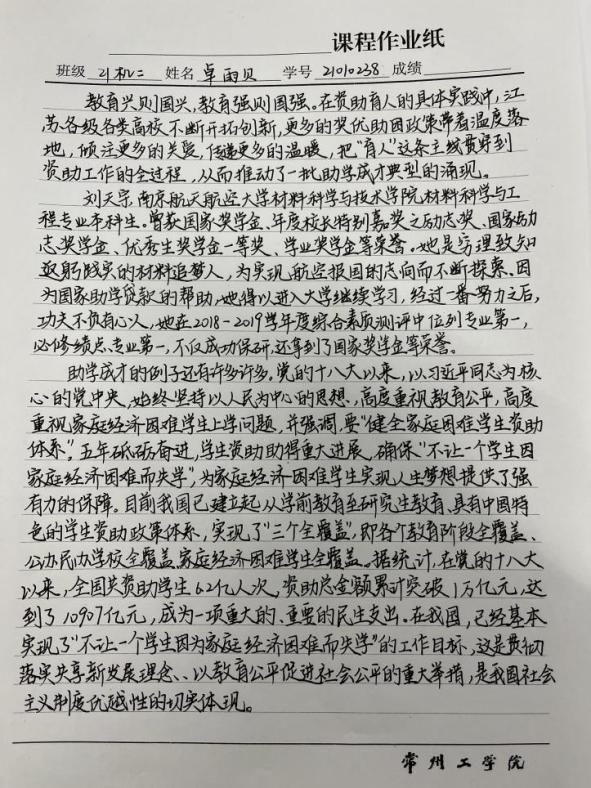 课程作业纸
班级 21机二 姓名 卓雨贝 学号 21010238 成绩
教育兴则国兴,教育强则国强。在资助育人的具体实践中,江
苏各级各类高校不断开拓创新,更多的奖优助困政策带着温度落
地,倾注更多的关爱,传递更多的温暖,把“育人”这条主线贯穿到
资助工作的全过程,从而推动了一批助学成才典型的涌现。
刘天宗,南京航天航空大学材料科学与技术学院材料科学与工
程专业本科生。曾获国家奖学金、年度校长特别嘉奖之励志奖、国家励
志奖学金、优秀生奖学金一等奖、学业奖学金等荣誉。她是穷理致知
返躬践实的材料追梦人,为实现航空报国的志向而不断探索。因
为国家助学贷款的帮助,她得以进入大学继续学习,经过一番努力之后,
功夫不负有心人,她在2018-2019学年度综合素质测评中位列专业第一,
必修绩点专业第一,不仅成功保研,还拿到了国家奖学金等荣誉。
助学成才的例子还有许多许多。党的十八大以来,以习近平同志为核
心的党中央,始终坚持以人民为中心的思想,高度重视教育公平,高度
重视家庭经济困难学生上学问题,并强调,要“健全家庭困难学生资助
体系”,五年砥砺奋进,学生资助助得重大进展,确保“不让一个学生因
家庭经济困难而失学”,为家庭经济困难学生实现人生梦想提供了强
有力的保障。目前我国已建立起从学前教育至研究生教育、具有中国特
色的学生资助政策体系,实现了“三个全覆盖”,即各个教育阶段全覆盖、
公办民办学校全覆盖、家庭经济困难学生全覆盖。据统计,在党的十八大
以来,全国共资助学生6.2亿人次,资助总金额累计突破1万亿元,达
到了10907亿元,成为一项重大的、重要的民生支出。在我国,已经基本
实现了“不让一个学生因为家庭经济困难而失学”的工作目标,这是贯彻
落实共享新发展理念、、以教育公平促进社会公平的重大举措,是我国社会
主义制度优越性的切实体现。
常州工学院